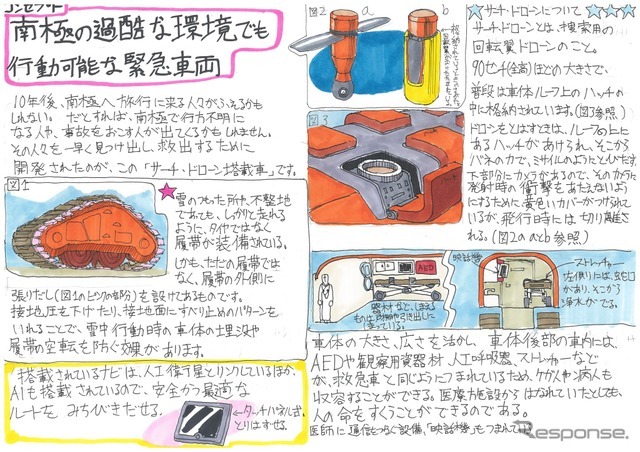 コンセプト
南極の過酷な環境でも
行動可能な緊急車両
10年後、南極へ旅行に来る人がふえるかも
しれない。 だとすれば、南極で行方不明に
なる人や、事故をおこす人が出てくるかもしれません。
その人を一早く見つけ出し、救出するために
開発されたのが、この「サーチ・ドローン搭載車」です。
図1
★
雪のつもった所や、不整地
であっても、しっかりと走れる
ように、タイヤではなく
履帯が装備されている。
しかも、ただの履帯では
なく、履帯の外側に
張りだし(図1のピンクの部分)を設けてあるものです。
接地圧を下げたり、接地面にすべり止めのパターンを
いれることで、雪中行動時の車体の埋没や
履帯の空転を防ぐ効果が あります。
搭載されているナビは、人工衛星とリンクしているほか
AIも搭載されているので、安全かつ最適な
ルートを みちびきだせる。
←タッチパネル式
とりはずせる。
図2 a b
格納されているときの
図3
★サーチ・ドローンについて ★★★
サーチ・ドローンとは、捜索用の
回転翼ドローンのこと。
90センチ(全高)ほどの大きさで、
普段は車体ルーフ上のハッチの
中に格納されています。(図3参照)
ドローンをとばすときは、ルーフの上に
あるハッチがあけられ、そこから
バネの力で、ミサイルのようにとびだす。
下部分にカメラがあるので、そのカメラに
発射時の衝撃をあたえないよう
にするために、黄色いカバーがつけられて
いるが、発行時には切り離さ
れる。(図2aとb参照)
映話機
AED
器木材など、しまえる
ものは
ストレッチャー
左側には、蛇口
があり、そこから
浄水がでる。
車体の大きさ、広さを活かし、車体後部の車内には、
AEDや観察用資器材、人工呼吸器、ストレッチャーなど
が、救急車と同じようにつまれているため、ケガ人や病人も
収容することができる。医療施設から はなれていたとしても、
人の命をすくうことができるのである。
医師に通信をつなぐ設備、「映話機」もつまれて
Response.